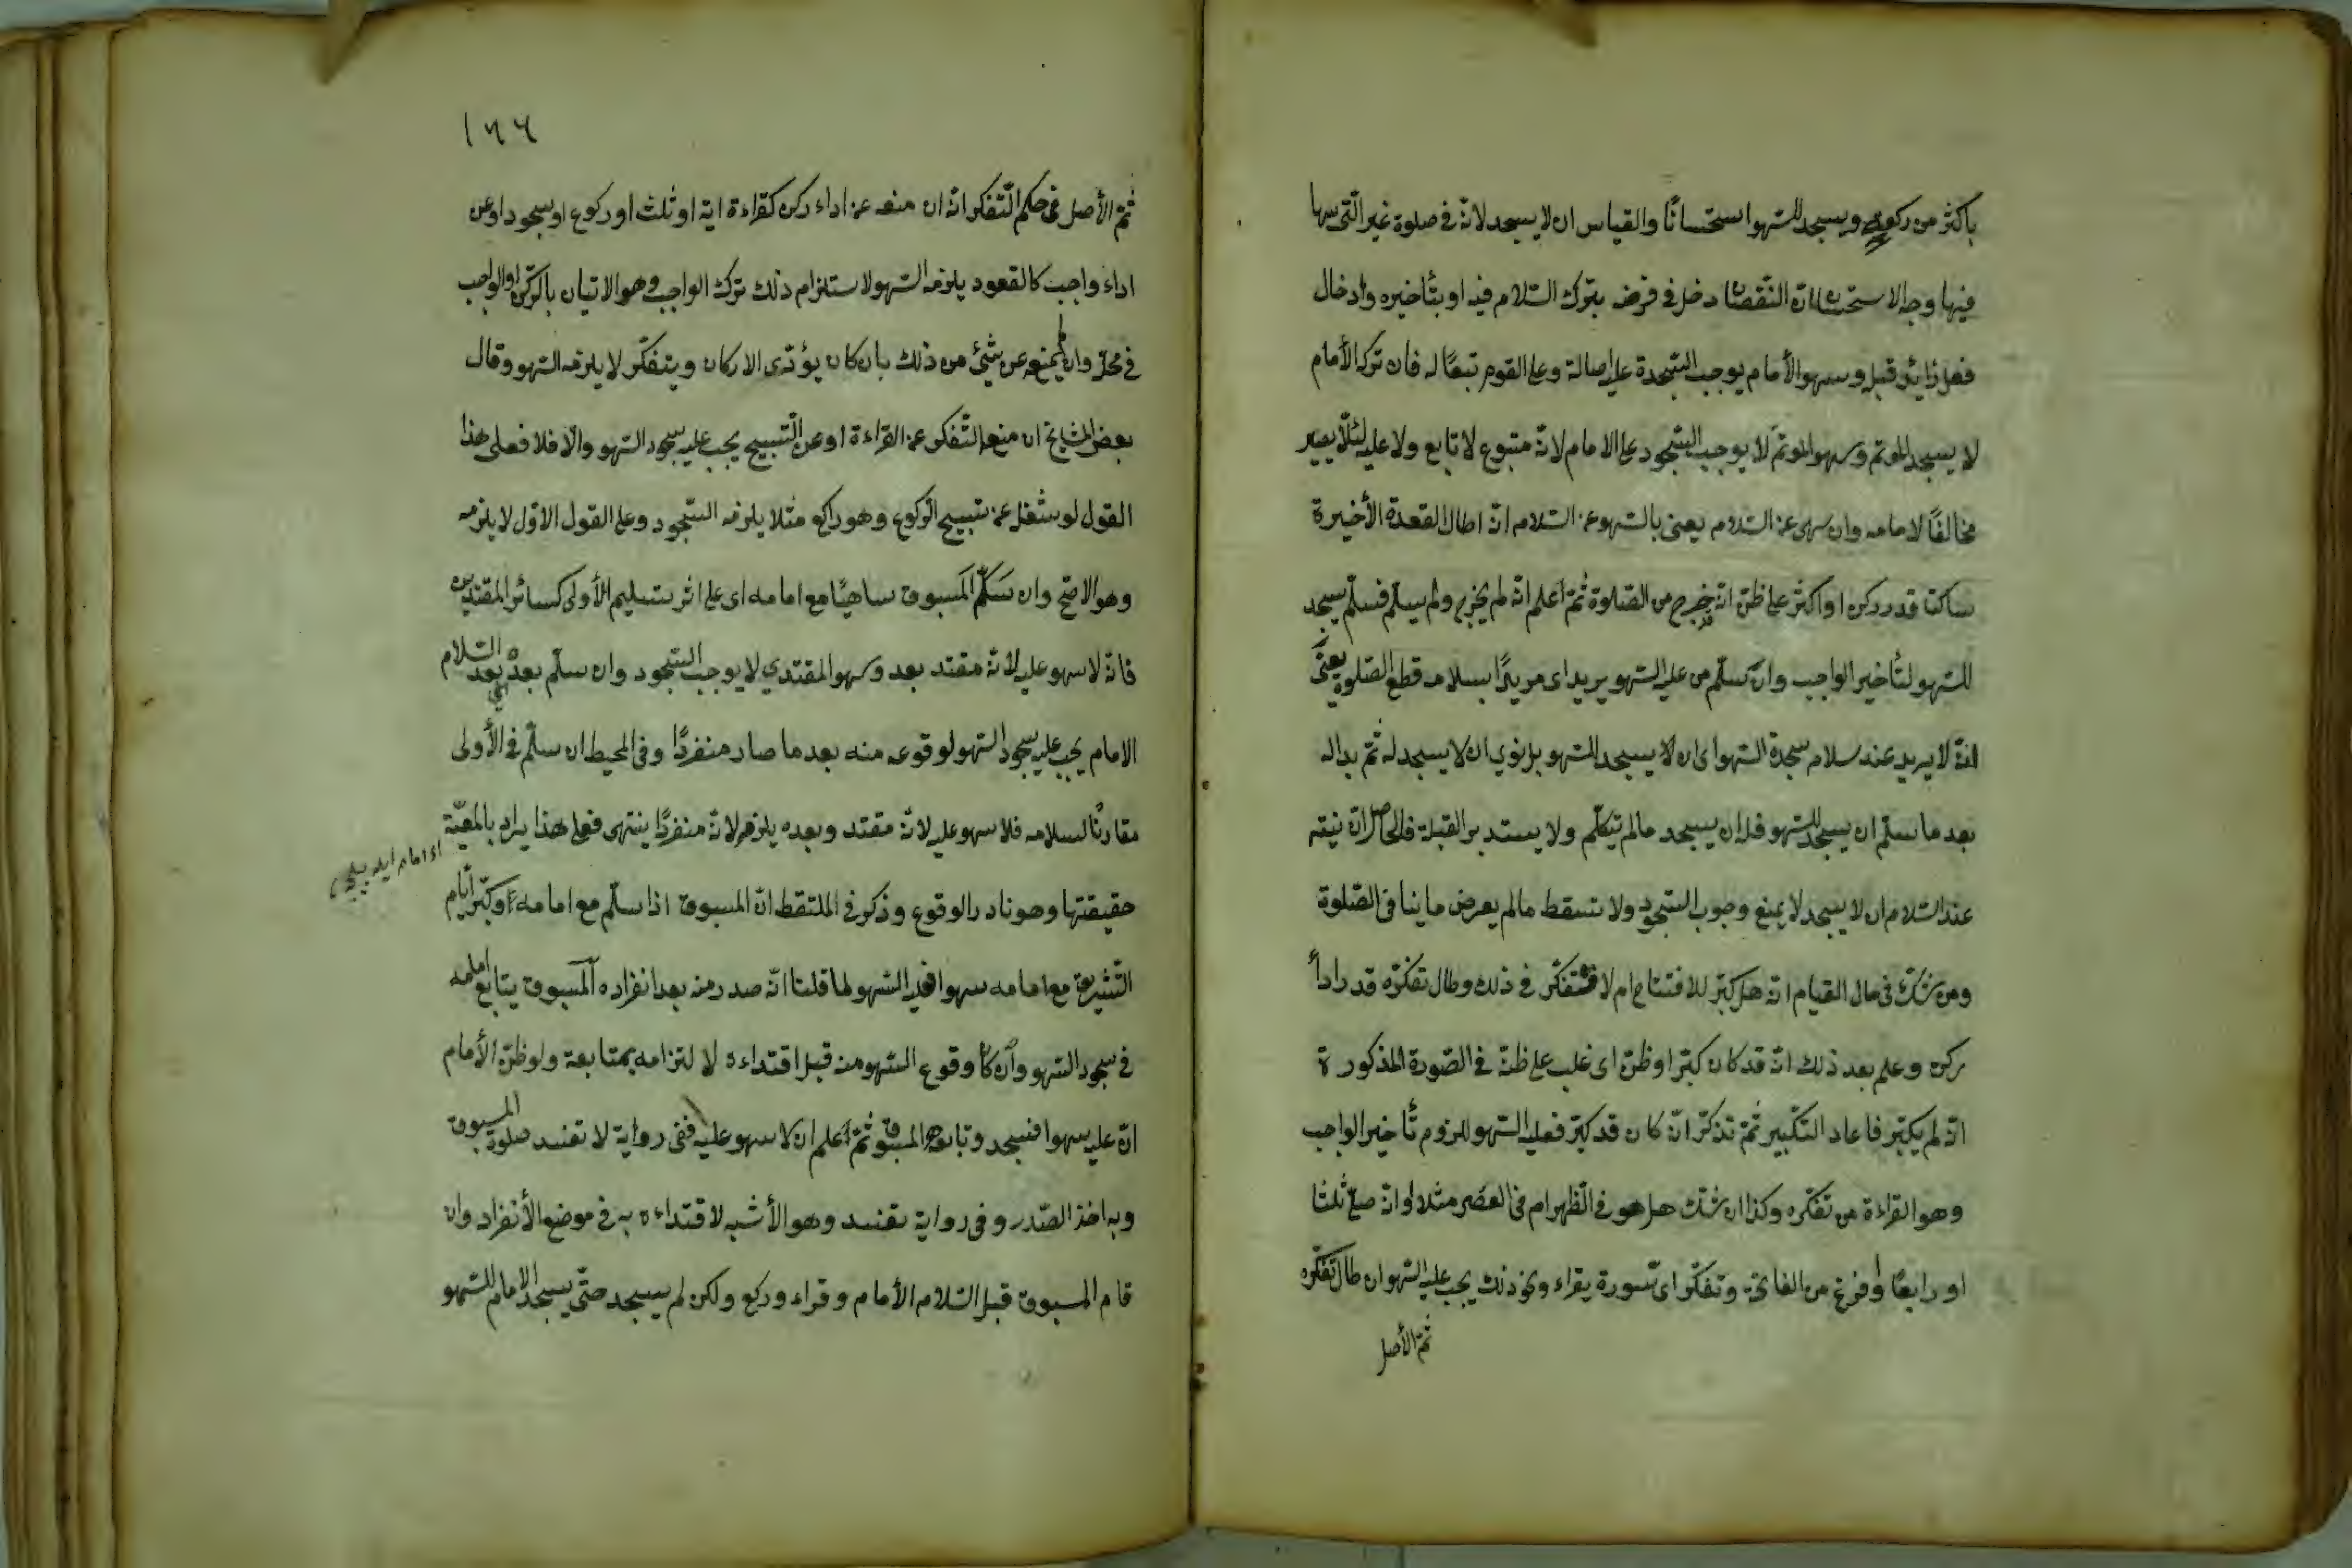 باكثر من ركوع ويسجد للسّهو استحسانًا والقياس ان لا يسجد لانّه فى صلوة غير الّتى سها
فيها وجه الاستحسان انّ النّقصان دخل فى فرضه بترك السّلام فيه او بتأخيره وادخال
فعل زائد قبله وسهو الأمام يوجب السّجدة عليه اصالة وعلى القوم تبعًا له فان تركه الأمام
لا يسجد المؤتم وسهو المؤتمّ لا يوجب السّجود على الامام لانّه متبوع لا تابع ولا عليه لئلّا يصير
مخالفًا لامامه وان سهى عن السّلام يعنى بالسّهو عن السّلام انّه اطال القعدة الأخيرة
ساكتا قدر ركن او اكثر على ظنّ انّه خرج من الصّلوة ثمّ اعلم انّه لم يخرج ولم يسلّم فسلّم يسجد
للسّهو لتأخير الواجب وان سلّم من عليه السّهو يريد اى مريدًا بسلامه قطع الصّلوة يعنى
انّه لا يريد عند سلامه سجدة السّهو اى ان لا يسجد للسّهو بل نوي ان لا يسجد له ثمّ بدا له
بعد ما سلّم ان يسجد للسّهو فله ان يسجد ما لم يتكلّم ولا يستدبر القبلة فالحاصل انّ نيته
عند السّلام ان لا يسجد لا يمنع وجوب السّجود ولا تسقط ما لم يعرض ما ينافى الصّلوة
ومن شكّ فى حال القيام انّه هل كبّر للافتتاح ام لا فتفكّر فى ذلك وطال تفكّره قدر اداء
ركن وعلم بعد ذلك انّه قد كان كبّر او ظنّ اى غلب على ظنّه فى الصّورة المذكورة
انّه لم يكبّر فاعاد التّكبير ثمّ تذكّر انّه كان قد كبّر فعليه السّهو للزوم تأخير الواجب
وهو القراءة من تفكّره وكذا ان شكّ هل هو فى الظّهر ام فى العصر مثلا او انّه صلّى ثلثا
او رابعًا او فرغ من الفاتحة وتفكّر اىّ سورة يقراء ونحو ذلك يجب عليه السّهو ان طال تفكّره
ثمّ الأصل
١٦٦
ثمّ الأصل فى حكم التّفكر انّه ان منعه عن اداء ركن كقراءة اية او ثلث او ركوع او سجود او عن
اداء واجب كالقعود يلزمه السّهو لاستلزام ذلك ترك الواجب وهو الاتيان بالرّكن او الواجب
فى محلّه وان لم يمنعه عن شيئ من ذلك بان كان يؤدّى الاركان ويتفكّر لا يلزمه السّهو وقال
بعض المشايخ ان منعه التّفكر عن القراءة او عن التّسبيح يجب عليه سجود السّهو والّا فلا فعلى هذا
القول لو شغله عن تسبيح الرّكوع وهو راكع مثلا يلزمه السّجود وعلى القول الاوّل لا يلزمه
وهو الاصحّ وان سَلّم المَسبوق ساهيًا مع امامه اى على اثر تسليم الأولى كسائر المقتدين
فانّه لا سهو عليه لأنّه مقتد بعد وسهو المقتدي لا يوجب السّجود وان سلّم بعده اى بعد السّلام
الامام يجب عليه سجود السّهو لوقوعه منه بعد ما صار منفردًا وفى المحيط ان سلّم فى الأولى
مقارنًا لسلامه فلا سهو عليه لانّه مقتد وبعده يلزم لانّه منفردًا ينتهى فعلى هذا يراد بالمعيّة
حقيقتها وهو نادر الوقوع وذكر فى الملتقط انّ المسبوق اذا سلّم مع امامه او كبّر أيّام
التّشريق مع امامه سهوا فعليه السّهو لما قلنا انّه صدر منه بعد انفراده المسبوق يتابع امامه
فى سجود السّهو وان كان وقوع السّهو منه قبل اقتداءه لا لتزامه بمتابعة ولو ظنّ الأمام
انّ عليه سهوا فسجد وتابعه المسبوق ثمّ اعلم ان لا سهو عليه ففى رواية لا تفسد صلوة المسبوق
وبه اخذ الصّدر وفى رواية تفسد وهو الأشبه لاقتداءه به فى موضع الأنفراد وان
قام المسبوق قبل السّلام الأمام وقراء وركع ولكن لم يسجد حتّى يسجد الامام للسّهو